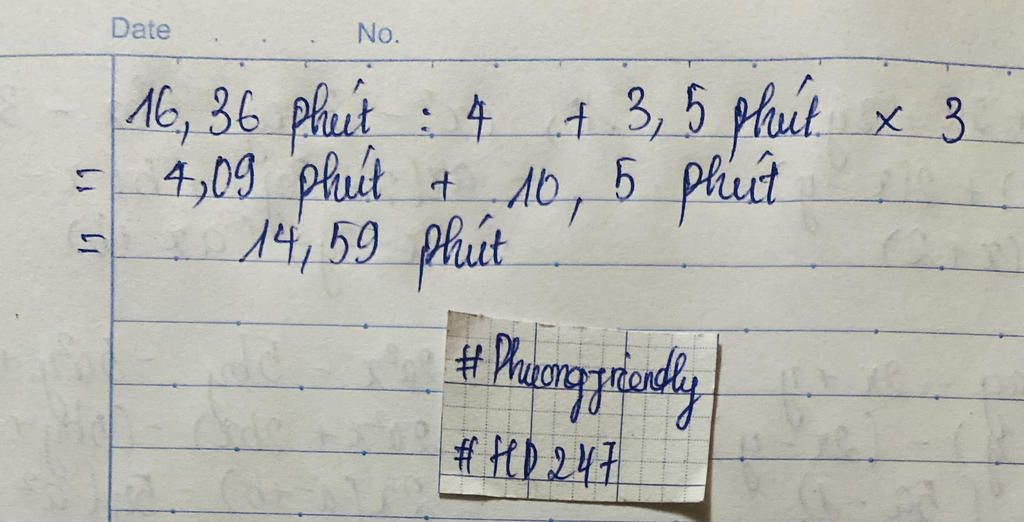 Date . . . . No.
16,36 phút : 4 + 3,5 phút × 3
= 4,09 phút + 10,5 phút
= 14,59 phút
# Phuongfriendly
# HD 247